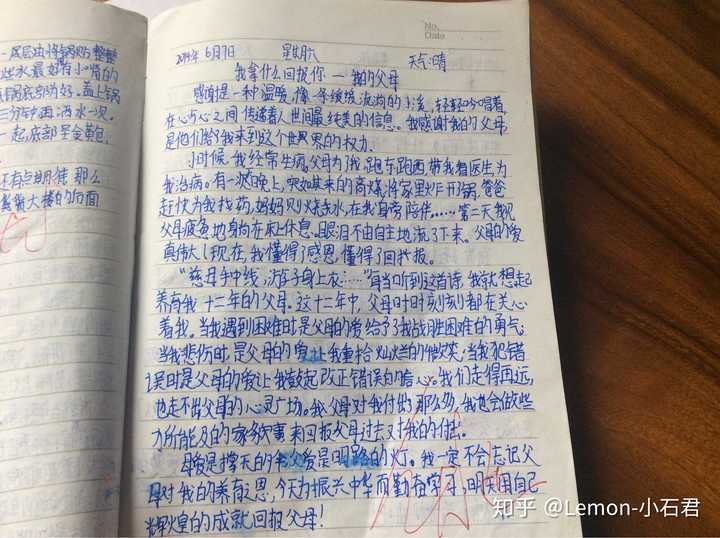 No.
Date
一层层地将锅贴整整
三分钟再洒水一次。
一起,底部呈金黄包,
餐厅大楼的后面
6月7日 星期六 天气:晴
我拿什么回报你 — 我的父母
感谢是一种温暖,像一条缓缓流淌的小溪,轻轻吟唱着,
在心与心之间传递着人世间最纯美的信息。我感谢我的父母,
是他们给予我来到这个世界的权力。
小时候,我经常生病,父母为了我,跑东跑西,带我看医生为
我治病。有一次晚上,突如其来的高烧,将家里炸开了锅,爸爸
赶快为我找药,妈妈则烧热水,在我身旁陪伴……第二天我见
父母疲惫地躺在床上休息,眼泪不由自主地流了下来。父母的爱
真伟大!现在,我懂得了感恩,懂得了回报。
“慈母手中线,游子身上衣……”每当听到这首诗,我就想起
养育我十二年的父母。这十二年中,父母时时刻刻都在关心
着我。当我遇到困难时是父母的爱给予了我战胜困难的勇气;
当我悲伤时,是父母的爱让我重拾灿烂的微笑;当我犯错
误时是父母的爱让我鼓起改正错误的信心。我们走得再远,
也走不出父母的心灵广场。我父母对我付出那么多,我也会做些
力所能及的家务事来回报父母过去对我的付出。
母爱是撑天的伞,父爱是明路的灯。我一定不会忘记父
母对我的养育之恩,今天为振兴中华而勤奋学习,明天用自己
辉煌的成就回报父母!
知乎 @Lemon-小石君